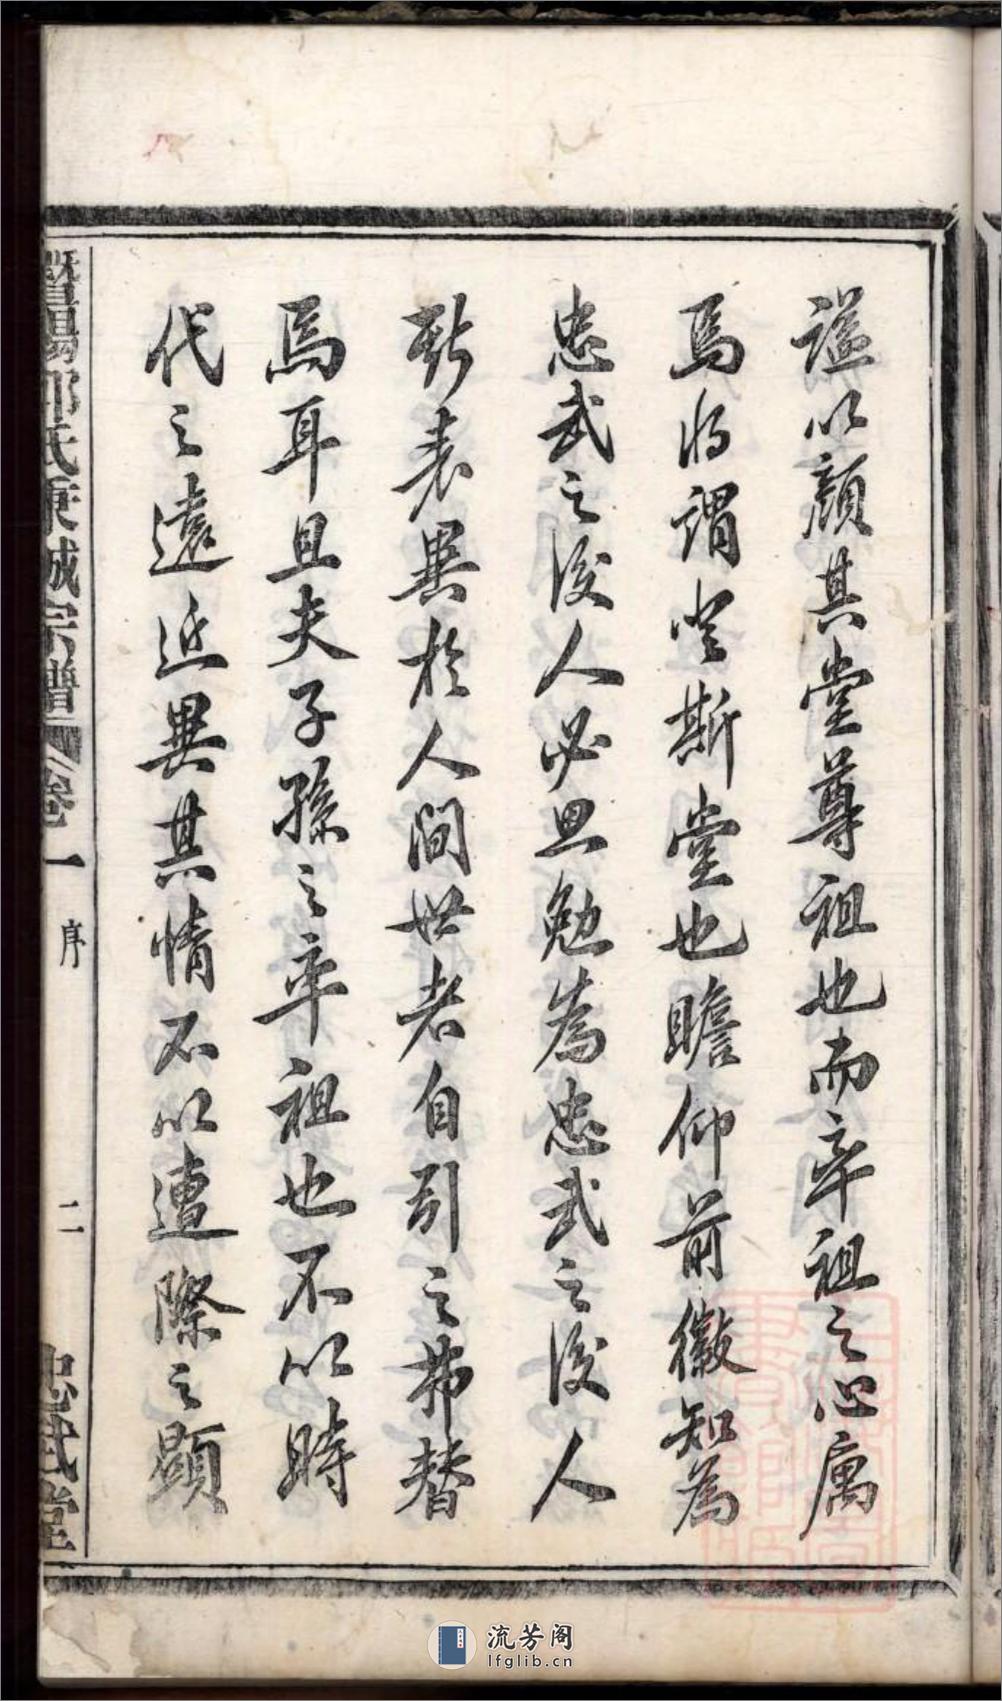 謚以顏其堂尊祖也而率祖之心寓
焉將謂登斯堂也瞻仰前徽知為
忠武之後人必思勉為忠武之後人
斯表異於人間世者自引之弗替
焉耳且夫子孫之率祖也不以時
代之遠近異其情不以遭際之顯
暨陽邵氏東城宗譜
卷一
序
二
忠武堂
流芳阁
lfglib.cn